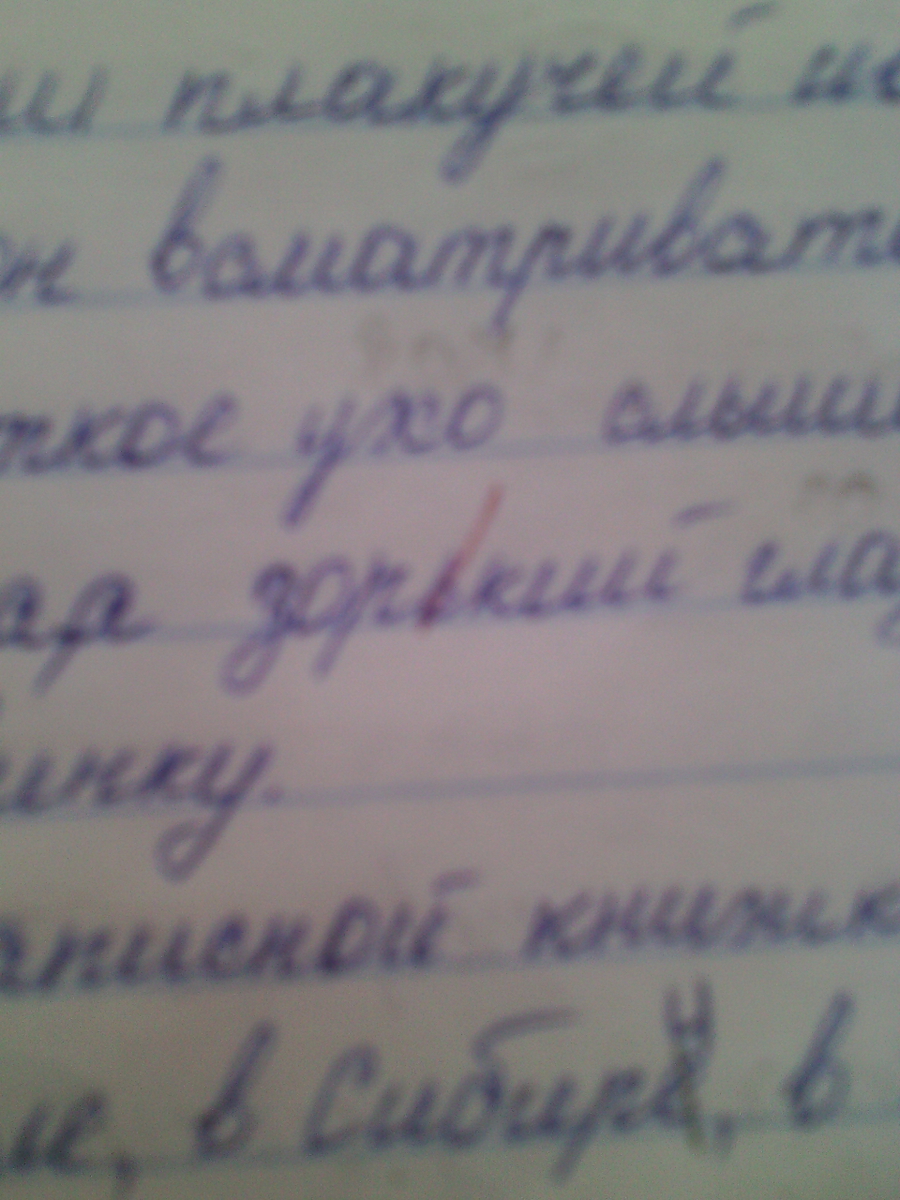 плакучей
всматривать
ткое ухо слыши
зорький гла
инку.
аписной книжк
ме, в Сибири, в